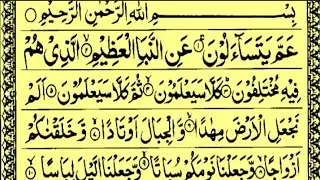 بِسْمِ اللّٰهِ الرَّحْمٰنِ الرَّحِيْمِ ○
عَمَّ يَتَسَآءَلُوْنَ ۚ‏ ○ عَنِ النَّبَاِ الْعَظِيْمِۙ‏ ○ الَّذِىْ هُمْ
فِيْهِ مُخْتَلِفُوْنَؕ‏ ○ كَلَّا سَيَعْلَمُوْنَۙ‏ ○ ثُمَّ كَلَّا سَيَعْلَمُوْنَ‏ ○ اَلَمْ
نَجْعَلِ الْاَرْضَ مِهٰدًاۙ‏ ○ وَّالْجِبَالَ اَوْتَادًاۙ‏ ○ وَّخَلَقْنٰكُمْ
اَزْوَاجًاۙ‏ ○ وَّجَعَلْنَا نَوْمَكُمْ سُبَاتًاۙ‏ ○ وَّجَعَلْنَا الَّيْلَ لِبَاسًاۙ‏ ○